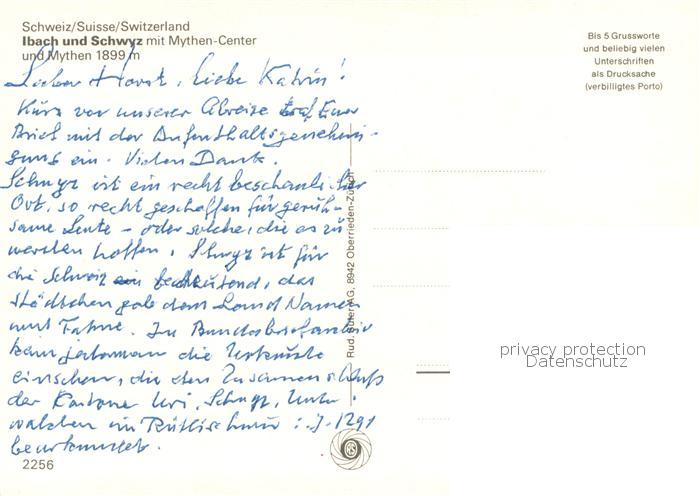 Schweiz/Suisse/Switzerland
Ibach und Schwyz mit Mythen-Center
und Mythen 1899 m
Lieber Horst, liebe Katrin!
Kurz vor unserer Abreise traf Euer
Brief mit der Aufenthaltsgenehmi-
gung ein. Vielen Dank.
Schwyz ist ein recht beschaulicher
Ort, so recht geschaffen für geruh-
same Leute – oder solche, die es zu
werden hoffen. Schwyz ist für
die Schweiz ein bedeutend, das
Städtchen gab dem Land Namen
und Fahne. Im Bundesbriefarchiv
kann jedermann die Urkunde
einsehen, die den Zusammenschluß
der Kantone Uri, Schwyz, Unter-
walden im Rütlischwur i. J. 1291
beurkundet.
2256
Rud. Suter AG, 8942 Oberrieden-Zürich
Bis 5 Grussworte
und beliebig vielen
Unterschriften
als Drucksache
(verbilligtes Porto)
privacy protection
Datenschutz